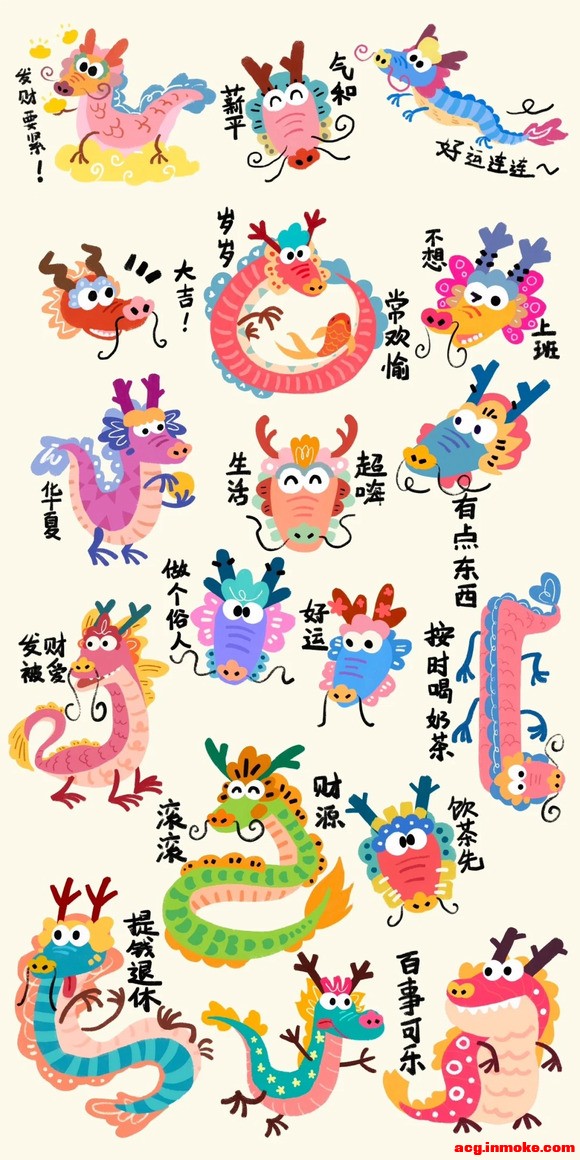 发财要紧！
薪平
气和
好运连连～
大吉！
岁岁
常欢愉
不想
上班
华夏
生活
超嗨
有点东西
做个俗人
好运
发财
被爱
按时喝奶茶
滚滚
财源
饮茶先
提钱退休
百事可乐
acg.inmoke.com